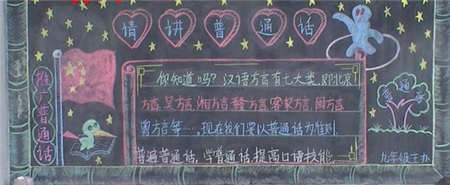 请讲普通话
推广普通话
你知道吗?汉语方言有七大类,即北京
方言、吴方言、湘方言、赣方言、客家方言、闽方言
粤方言等…,现在我们要以普通话为准则,
普遍普通话,学普通话,提高口语技能。
普通话
九年级主办